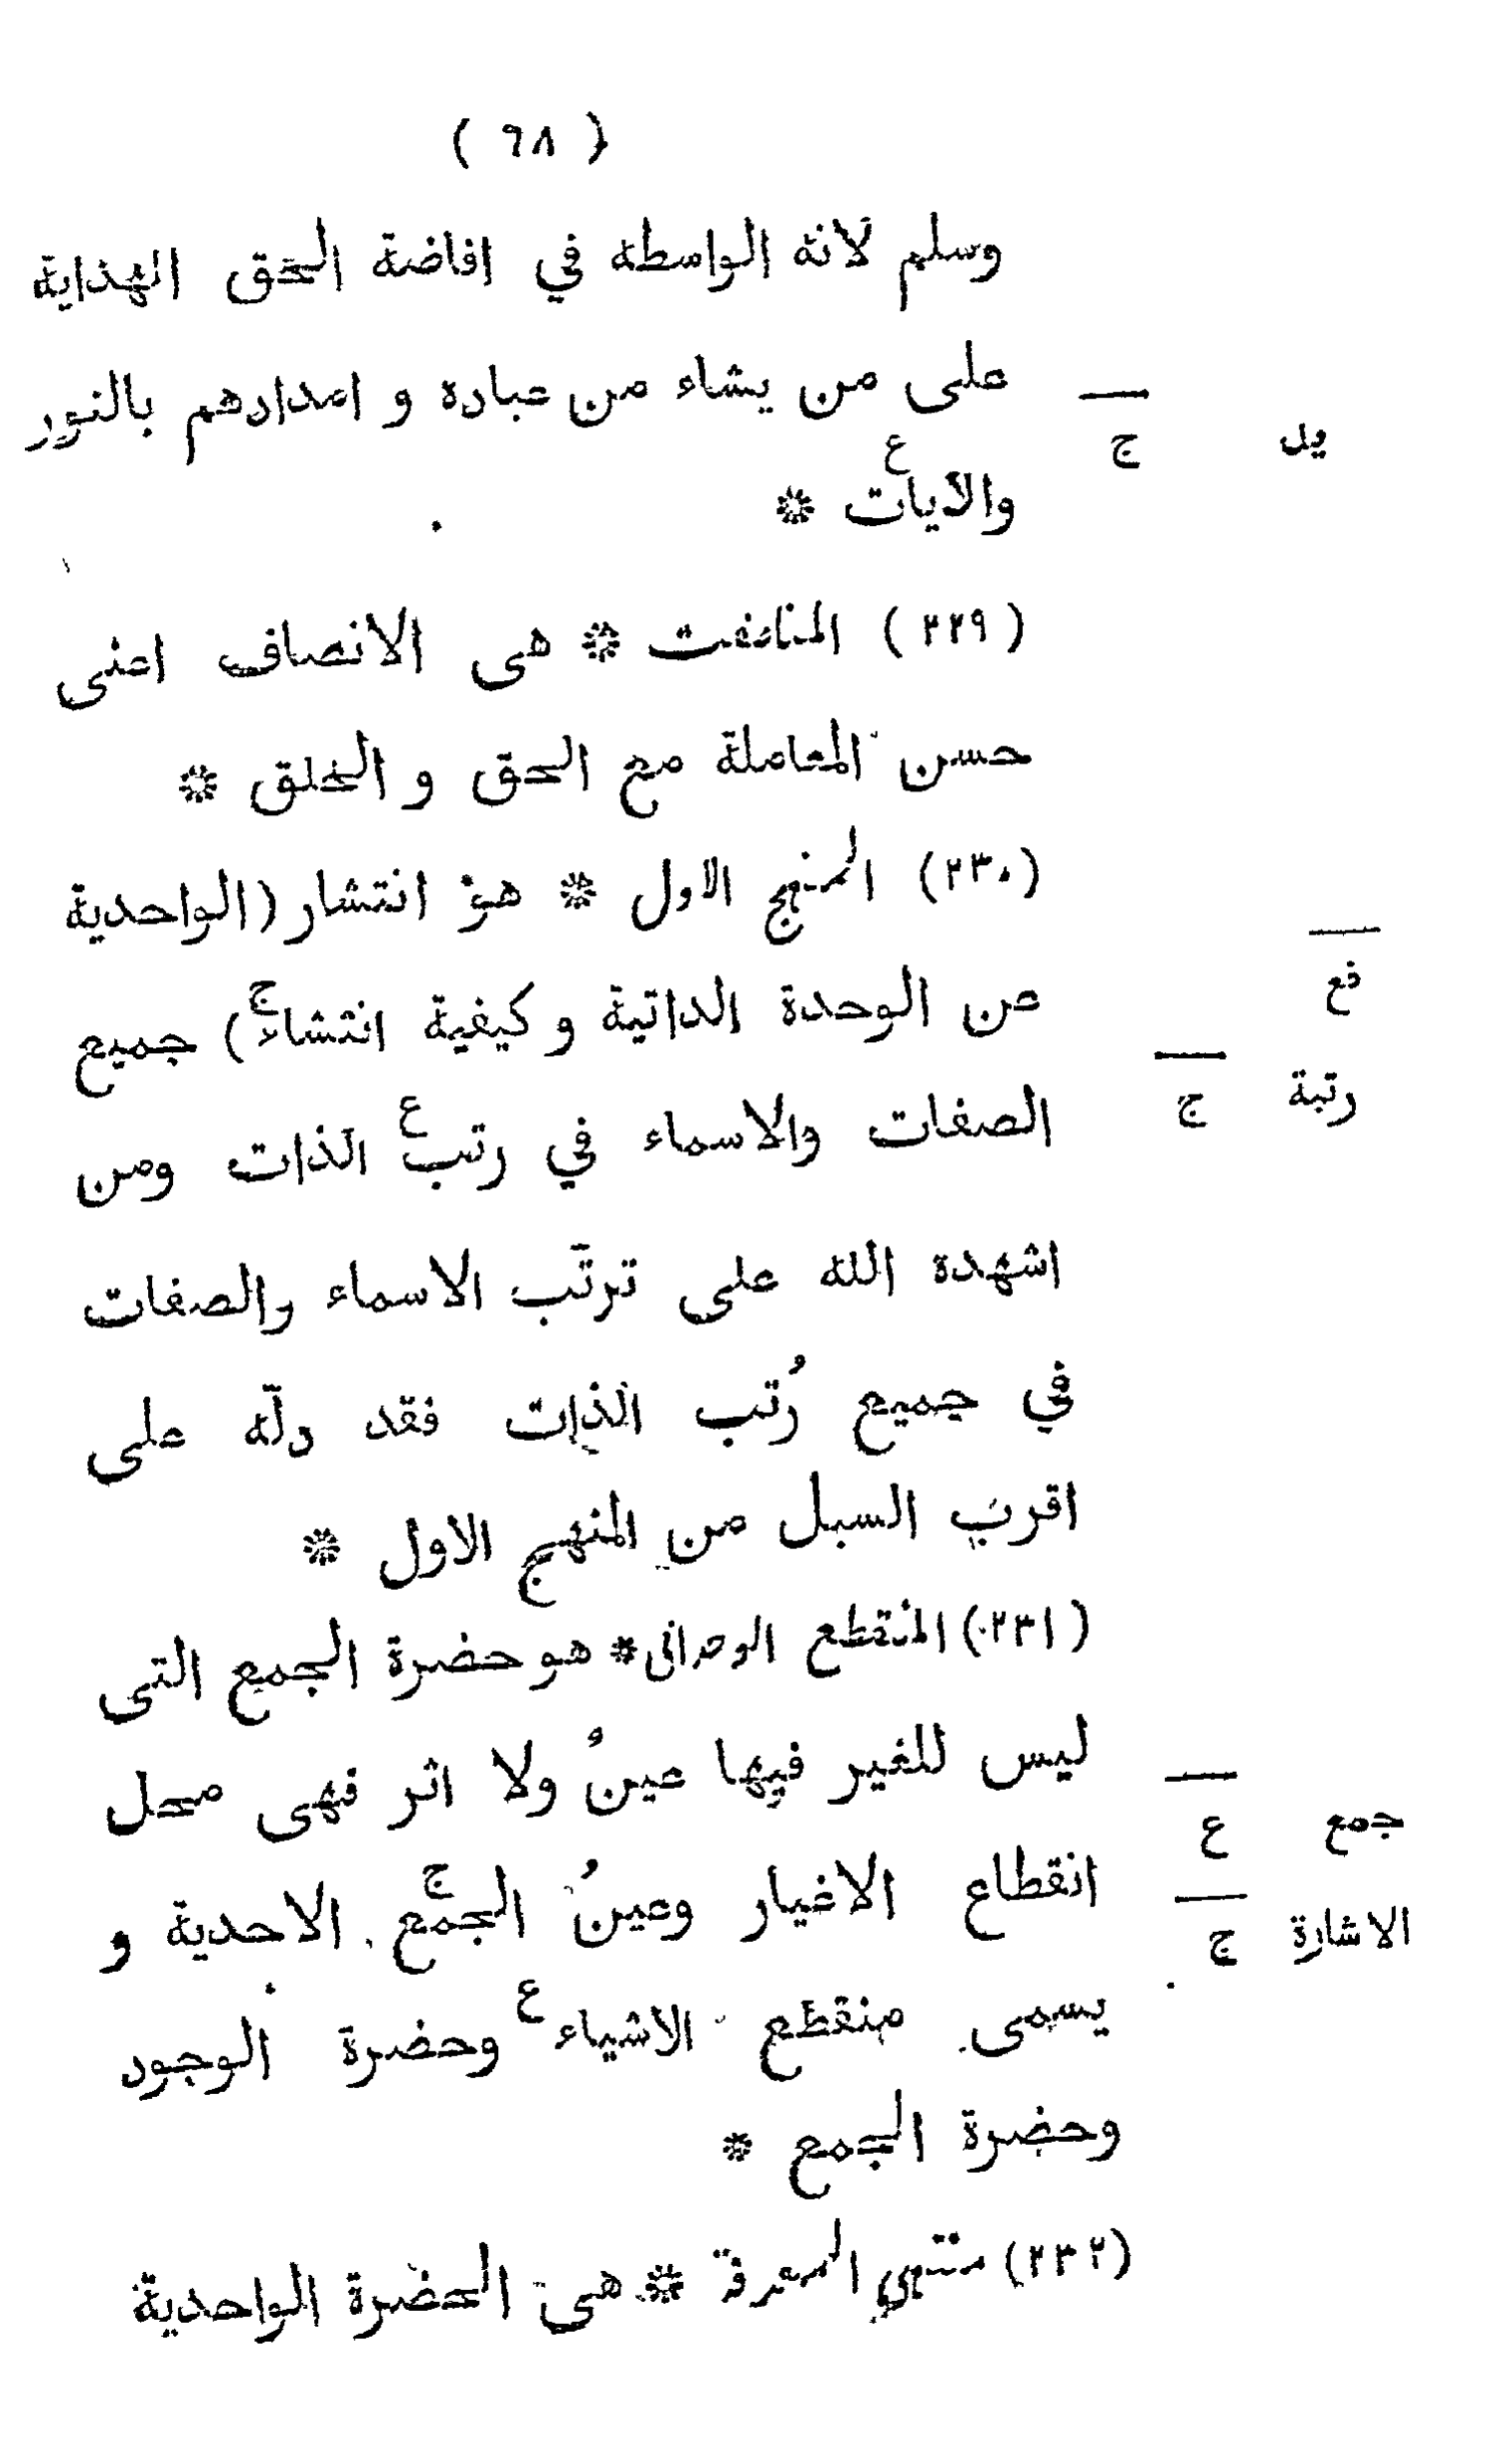 ( ٦٨ )
وسلم لانه الواسطة في افاضة الحق الهداية
على من يشاء من عباده و امدادهم بالنور
والآيات ع *
(٢٢٩) المناصفت * هى الانصاف اعنى
حسن المعاملة مع الحق و الخلق *
(٢٣٠) المنهج الاول * هو انتشار (الواحدية
عن الوحدة الذاتية و كيفية انتشاء ج) جميع
الصفات والاسماء في رتب ع الذات ومن
اشهدة الله على ترتّب الاسماء والصفات
في جميع رُتب الذات فقد دلّه على
اقرب السبل من المنهج الاول *
(٢٣١) المنقطع الوحدانى * هو حضرة الجمع التى
ليس للغير فيها عينٌ ولا اثر فهى محل
انقطاع الاغيار وعينُ الجمع ج الاحدية و
يسمى منقطع الاشياء ع وحضرة الوجود
وحضرة الجمع *
(٢٣٢) منتهي المعرفة * هى الحضرة الواحدية
ج يل
فع
ج رتبة
ع جمع
ج الاشارة